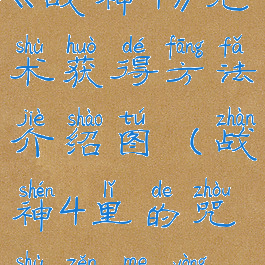 《战神4》咒
shù huò dé fāng fǎ
术获得方法
jiè shào tú zhàn
介绍图（战
shén lǐ de zhòu
神4里的咒
shù zěn me yòng